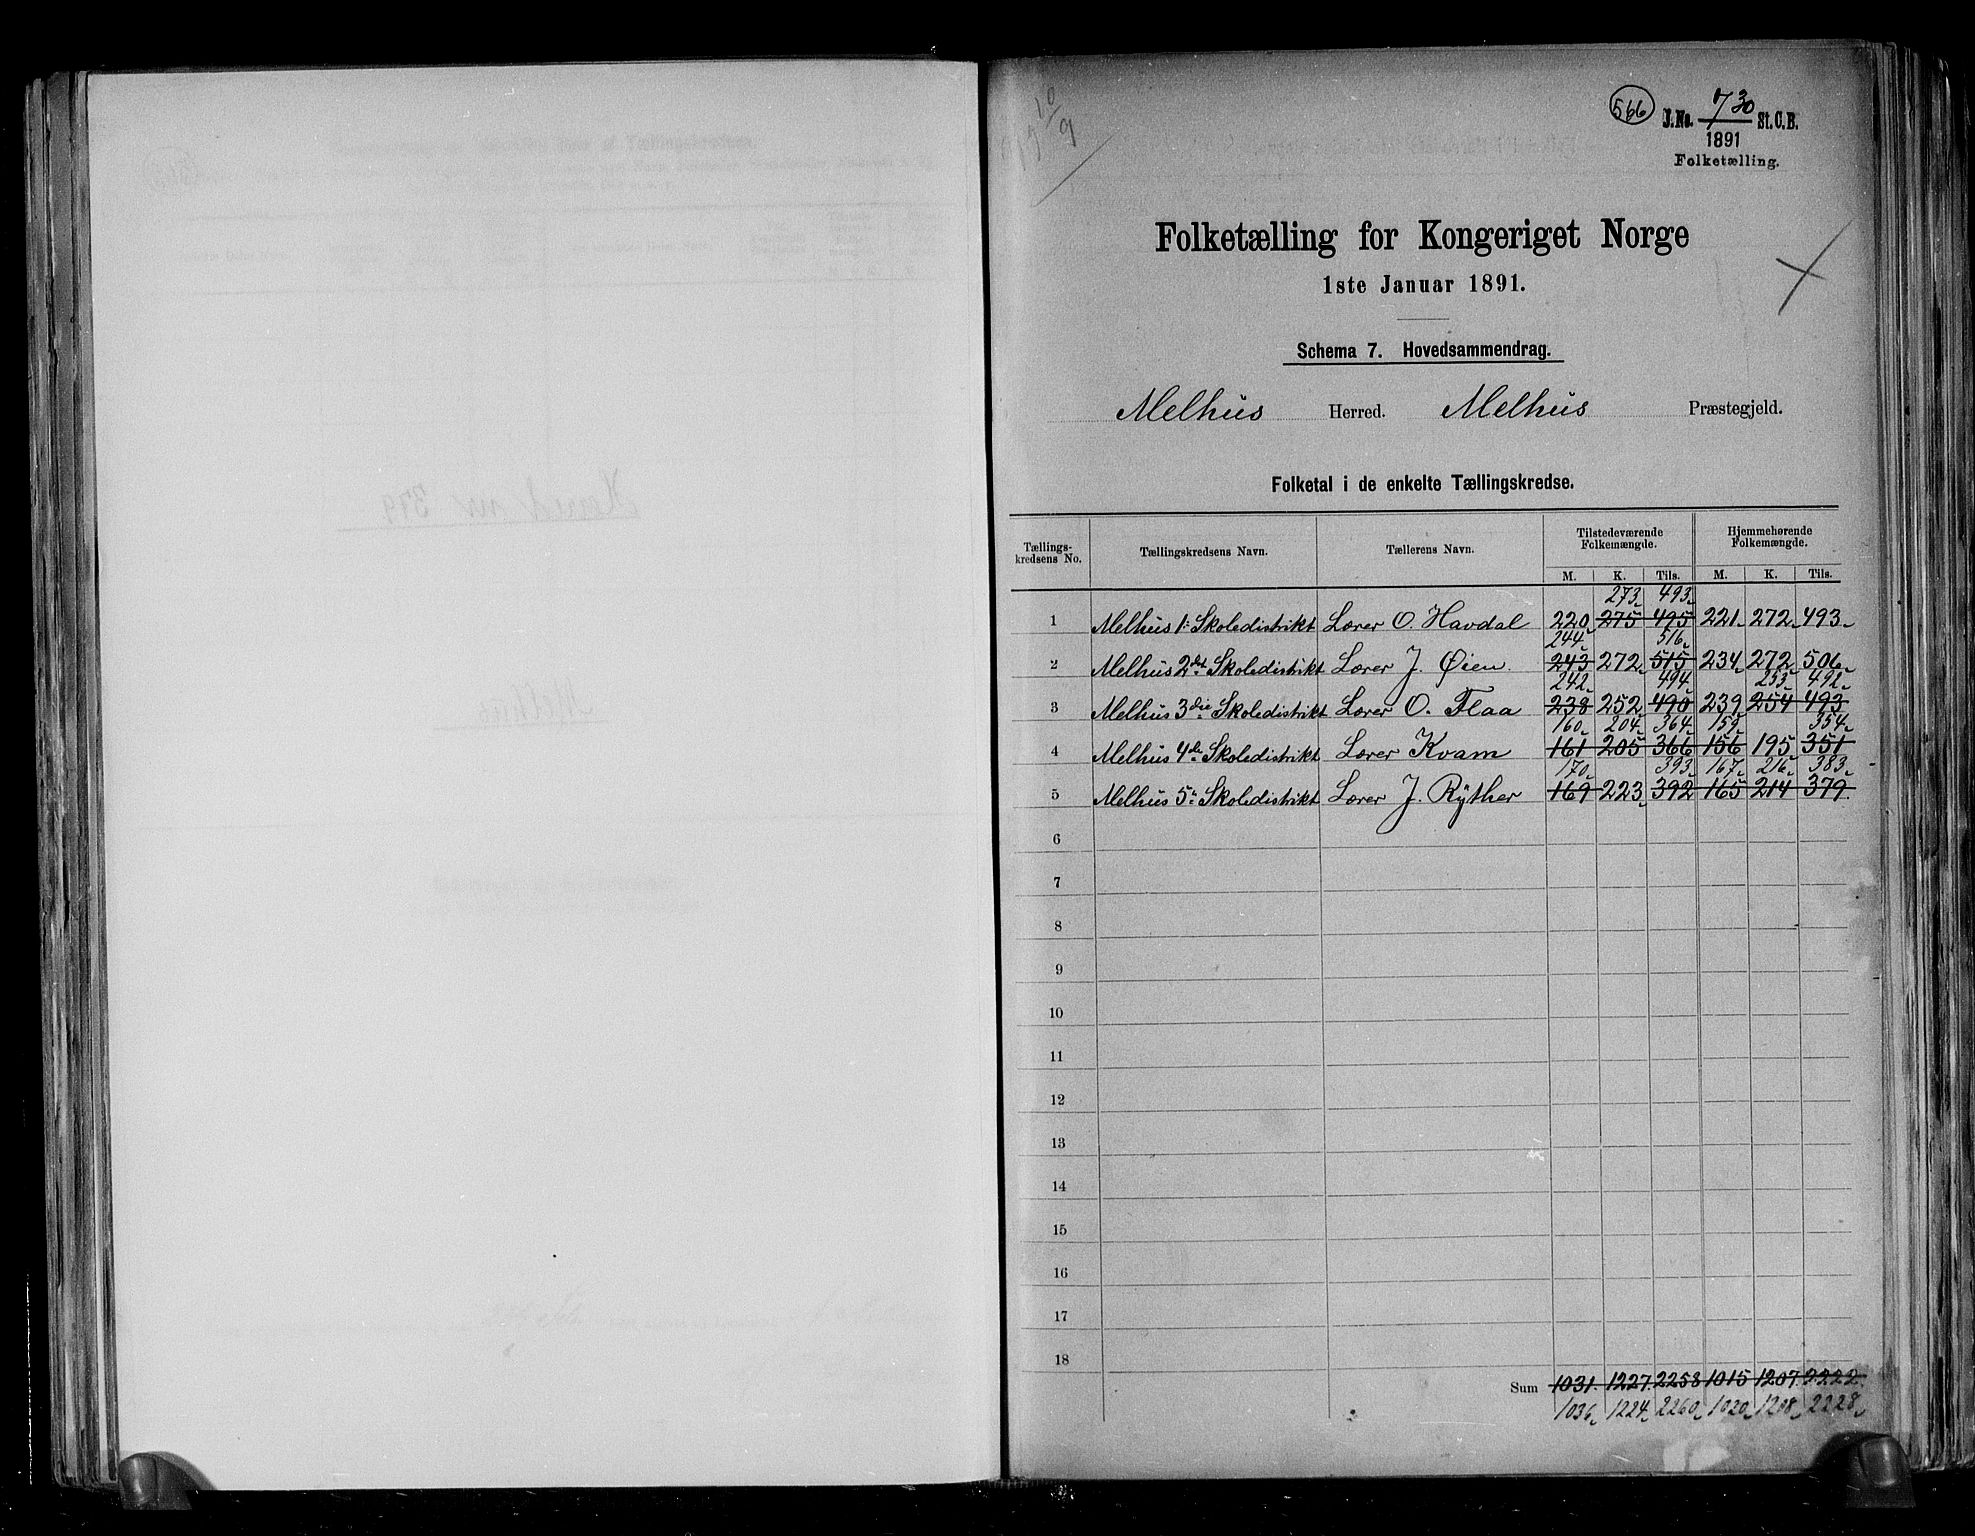 566
J.No. 730 St.C.B.
1891
Folketælling.
Folketælling for Kongeriget Norge
1ste Januar 1891.
Schema 7. Hovedsammendrag.
Melhus Herred. Melhus Præstegjeld.
Folketal i de enkelte Tællingskredse.
Tællings-kredsens No. Tællingskredsens Navn. Tællerens Navn. Tilstedeværende Folkemængde. Hjemmehørende Folkemængde.
M. K. Tils. M. K. Tils.
273 493
1 Melhus 1: Skoledistrikt Lærer O. Havdal 220 275 495 221 272 493
244 516
2 Melhus 2det Skoledistrikt Lærer J. Øien. 243 272 515 234 272 506
242 494 253 492
3 Melhus 3die Skoledistrikt Lærer O. Flaa 238 252 490 239 254 493
160 204 364 159 354
4 Melhus 4de Skoledistrikt Lærer Kvam 161 205 366 156 195 351
170 393 167 216 383
5 Melhus 5: Skoledistrikt Lærer J. Rÿther 169 223 392 165 214 379
6
7
8
9
10
11
12
13
14
15
16
17
18
Sum 1031 1227 2258 1015 1207 2222
1036 1224 2260 1020 1208 2228